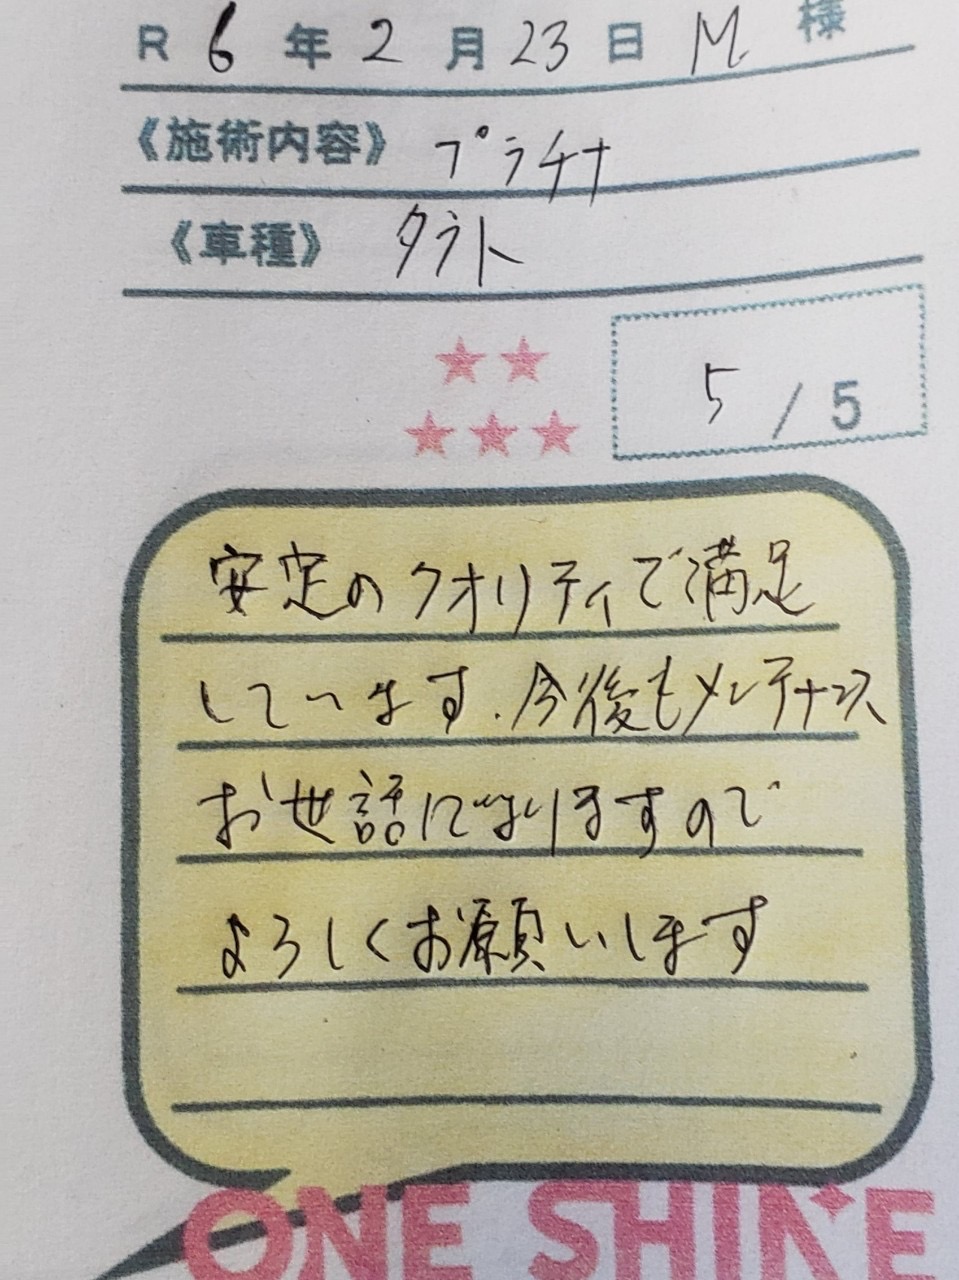 R 6 年 2 月 23 日 M 様
《施術内容》 プラチナ
《車種》 タフト
5 / 5
安定のクオリティで満足
しています.今後もメンテナンス
お世話になりますので
よろしくお願いします
ONE SHINE